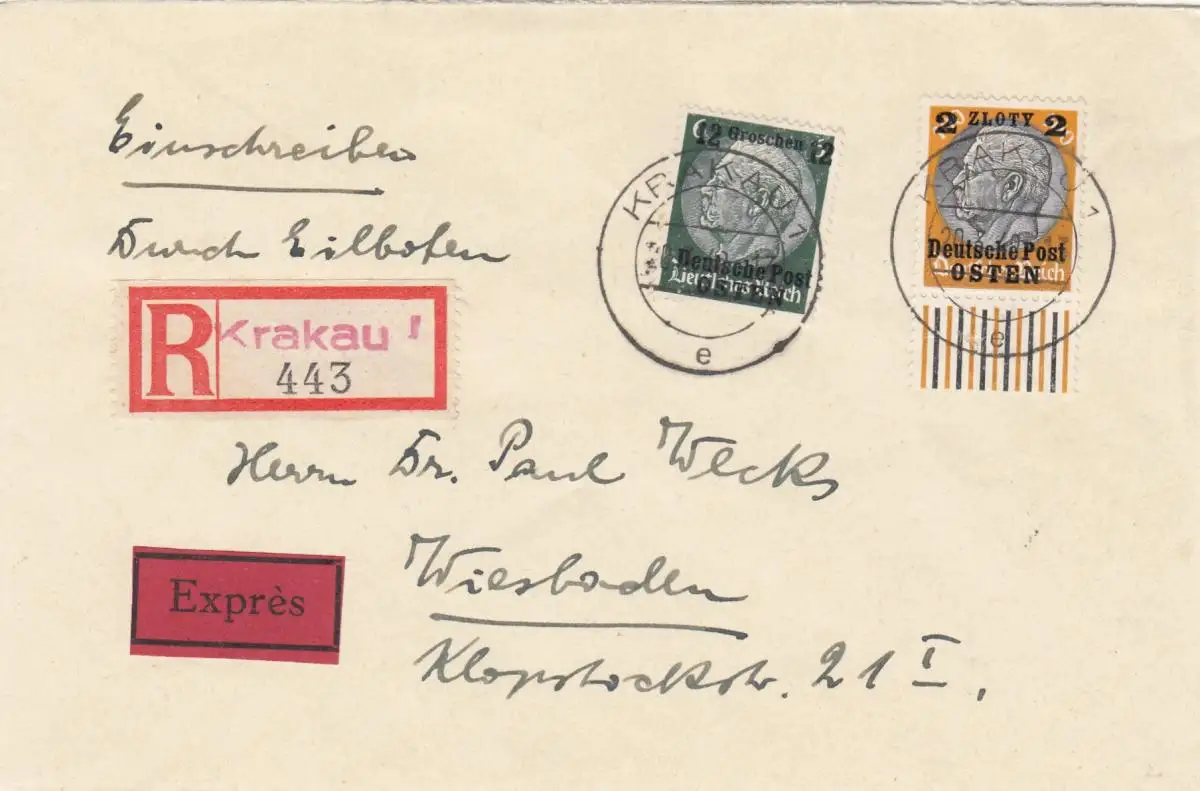 Einschreiben
Durch Eilboten
R Krakau 1
443
12 Groschen 12
Deutsche Post
OSTEN
Deutsches Reich
KRAKAU 1
e
2 ZLOTY 2
Deutsche Post
OSTEN
Deutsches Reich
KRAKAU 1
e
Herrn Dr. Paul Wecks
Exprès
Wiesbaden
Klopstockstr. 21 I,